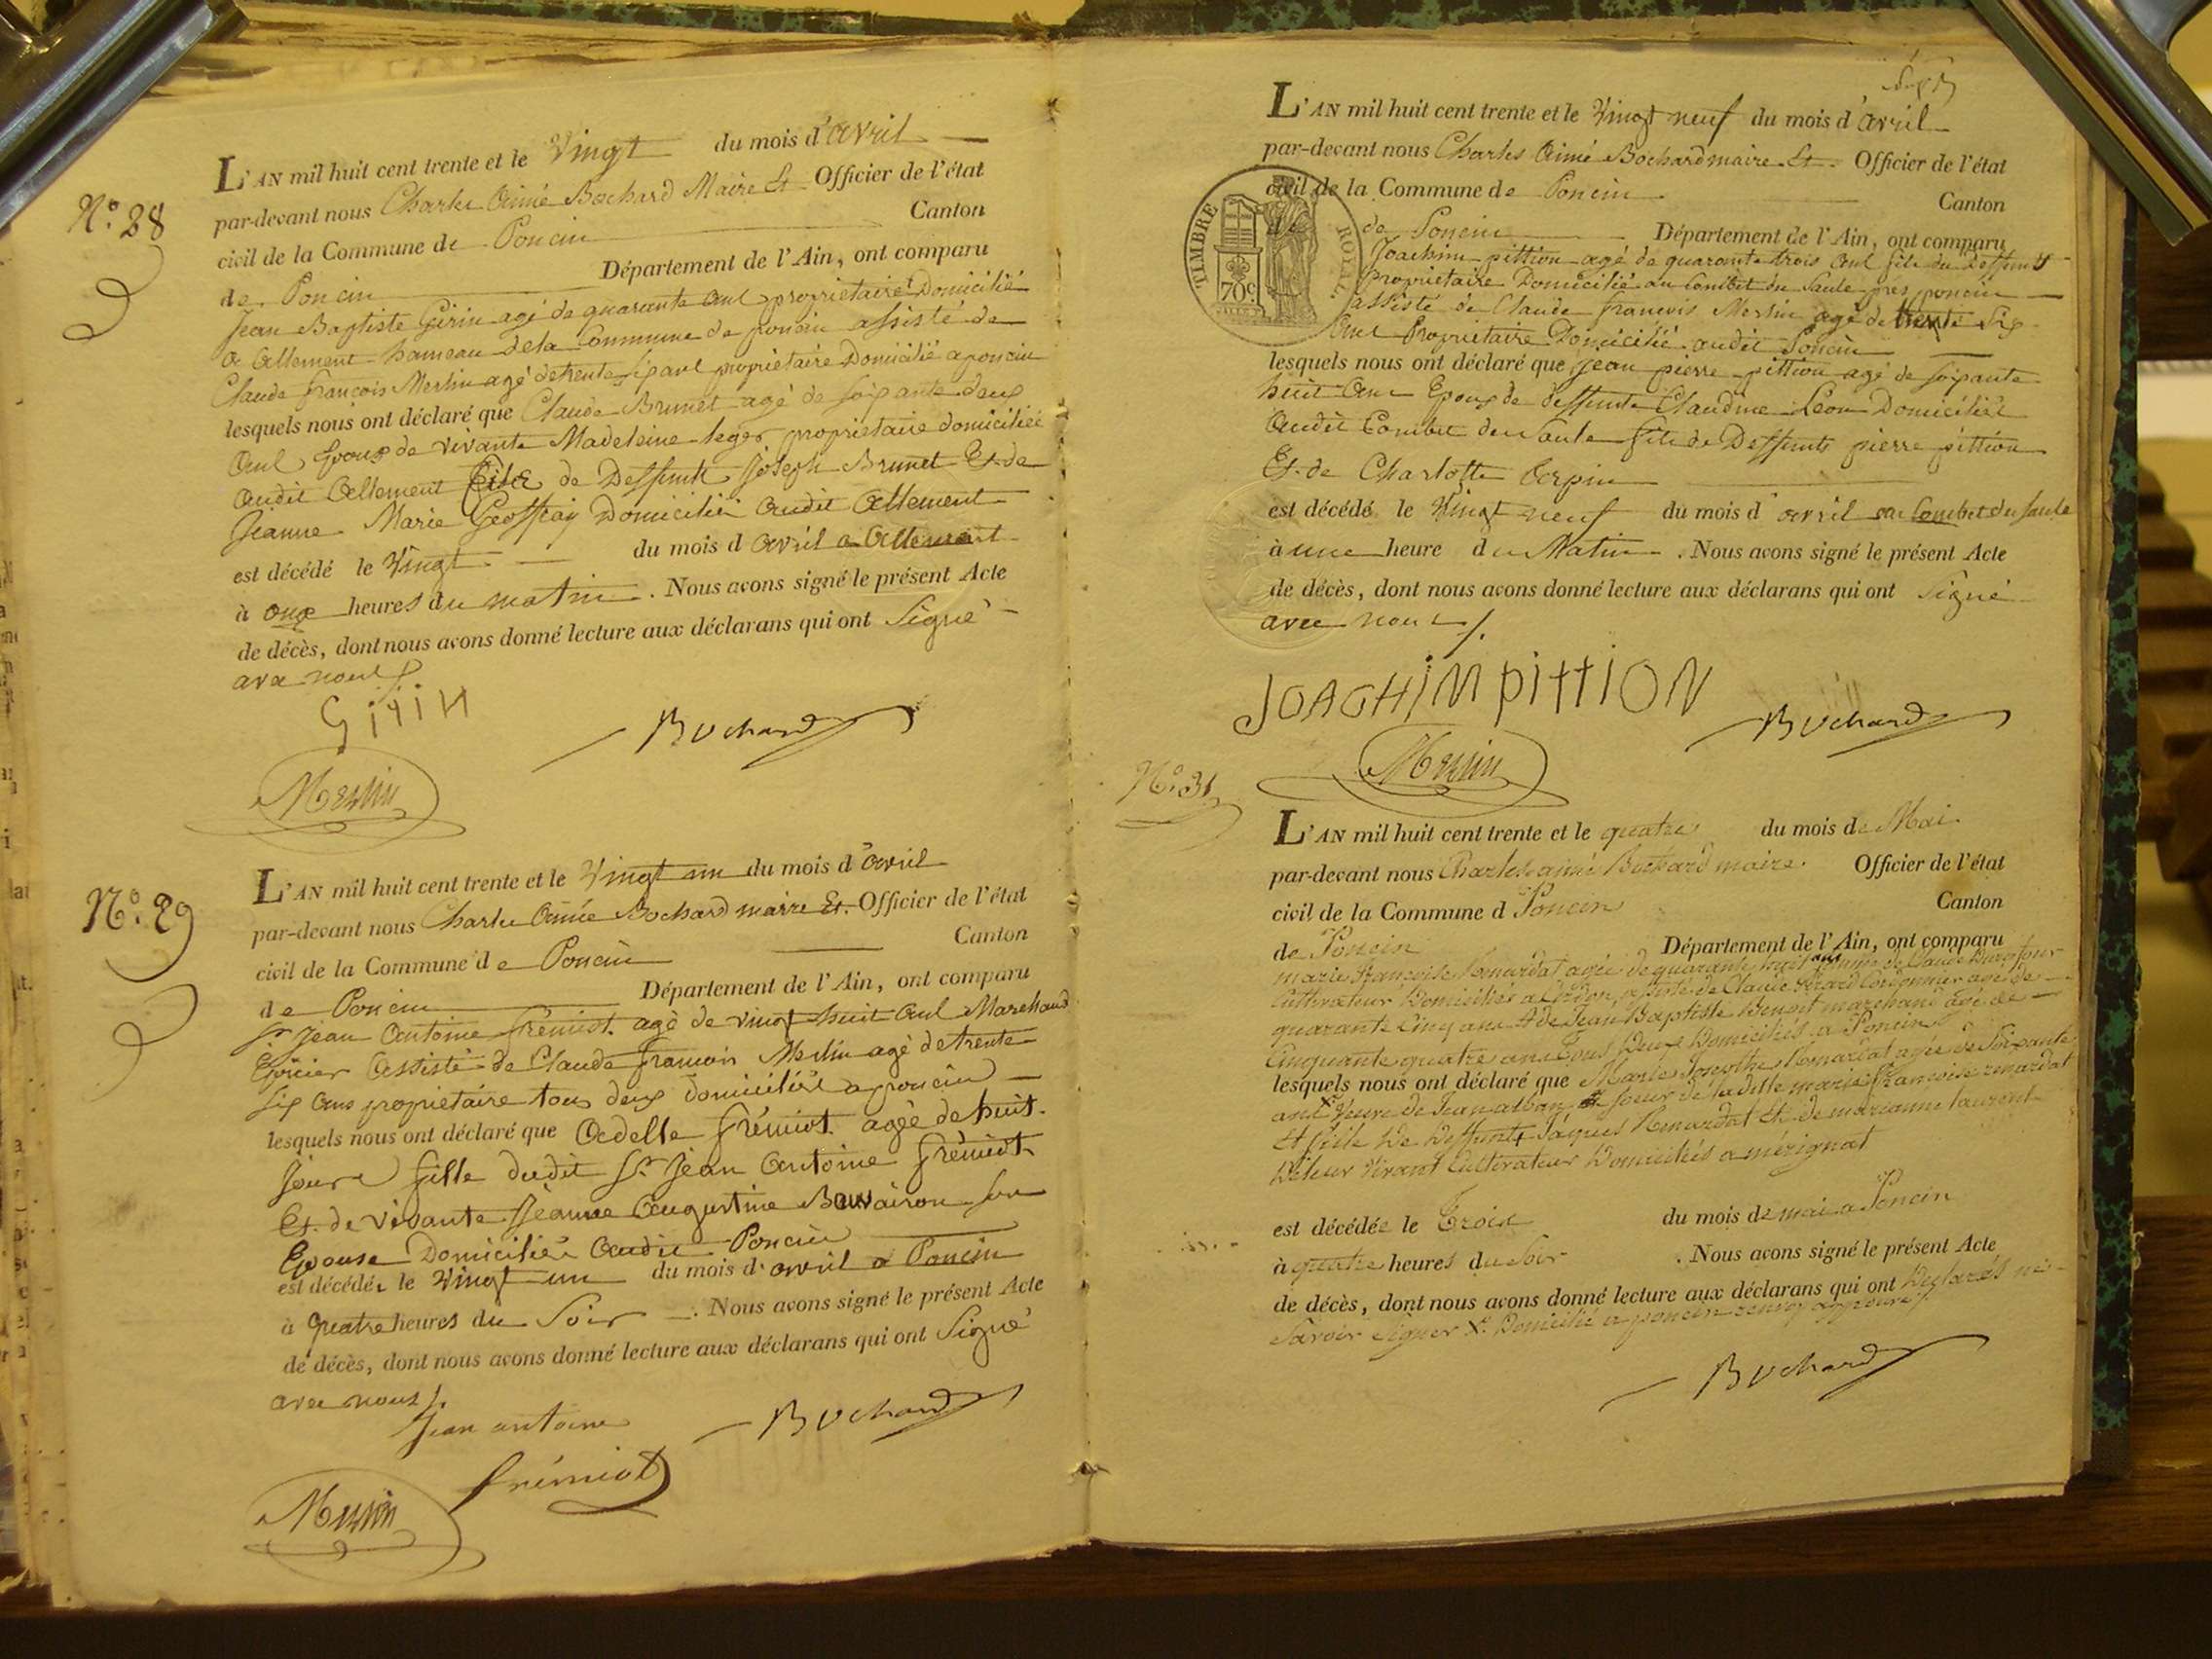 N.° 28
L'AN mil huit cent trente et le Vingt du mois d'avril
par-devant nous Charles Aimé Bochard Maire Et Officier de l'état
civil de la Commune de Poncin Canton
de Poncin Département de l'Ain, ont comparu
Jean Baptiste Girin agé de quarante ans propriétaire Domicilié
a Allement hameau de la Commune de poncin assisté de
Claude françois Merlin agé de trente six ans propriétaire Domicilié a poncin
lesquels nous ont déclaré que Claude Brunet agé de soixante deux
ans Epoux de vivante Madeleine leger propriétaire domiciliée
audit Allement fils de Deffunts Joseph Brunet Et de
Jeanne Marie Geoffray Domicilié audit Allement
est décédé le Vingt du mois d avril a Allement
à onze heures du matin. Nous avons signé le présent Acte
de décès, dont nous avons donné lecture aux déclarans qui ont Signé
avec nous
Girin
Bochard
Merlin
N.° 29
L'AN mil huit cent trente et le Vingt un du mois d'avril
par-devant nous Charles Aimée Bochard maire Et. Officier de l'état
civil de la Commune de Poncin Canton
de Poncin Département de l'Ain, ont comparu
Sr Jean Antoine frémiot agé de vingt huit ans Marchand
Epicier Assisté de Claude françois Merlin agé de trente
six ans propriétaire tous deux domiciliés a poncin
lesquels nous ont déclaré que Adelle frémiot agée de huit
jours fille dudit Sr Jean Antoine frémiot
Et. de vivante Jeanne Augustine Bouvairon son
Epouse Domiciliés audit Poncin
est décédée le Vingt un du mois d' avril a Poncin
à quatre heures du Soir. Nous avons signé le présent Acte
de décès, dont nous avons donné lecture aux déclarans qui ont Signé
avec nous
Jean antoine
frémiot
Bochard
Merlin
L'AN mil huit cent trente et le Vingt neuf du mois d'avril
par-devant nous Charles Aimé Bochard maire Et. Officier de l'état
civil de la Commune de Poncin Canton
de Poncin Département de l'Ain, ont comparu
TIMBRE ROYAL
70c
Joachim pittion agé de quarante trois ans fils du deffunt
Propriétaire Domicilié au Combet du Saule pres poncin
assisté de Claude françois Merlin agé de trente six
ans Propriétaire Domicilié audit Poncin
lesquels nous ont déclaré que Jean pierre pittion agé de soixante
huit ans Epoux de deffunte Claudine Leon Domicilié
audit Combet du Saule fils de Deffunts pierre pittion
Et. de Charlotte
est décédé le Vingt neuf du mois d' avril au Combet du Saule
à une heure du Matin. Nous avons signé le présent Acte
de décès, dont nous avons donné lecture aux déclarans qui ont Signé
avec nous
JOACHIM PITTION
Bochard
Merlin
N.° 31
L'AN mil huit cent trente et le quatre du mois de Mai
par-devant nous Charles aimé Bochard maire. Officier de l'état
civil de la Commune d Poncin Canton
de Poncin Département de l'Ain, ont comparu
marie françoise Renardat agée de quarante huit ans femme de Claude
Cultivateur Domiciliés a Cerdon, assisté de Claude Cordonnier agé de
quarante Cinq ans Et de Jean Baptiste Benoit marchand agé de
Cinquante quatre ans tous Deux Domiciliés a Poncin
lesquels nous ont déclaré que Marie Josephte Renardat agée de Soixante
ans X Veuve de Jean alban Et Soeur de la ditte marie françoise renardat
Et fille De Deffunts Jaques Renardat Et de marianne laurent
De leur Vivant Cultivateur Domiciliés a mérignat
est décédée le Trois du mois de mai a Poncin
à quatre heures du Soir. Nous avons signé le présent Acte
de décès, dont nous avons donné lecture aux déclarans qui ont Déclarés ne
Savoir Signer X. Domicilié a poncin renvoy approuvé
Bochard